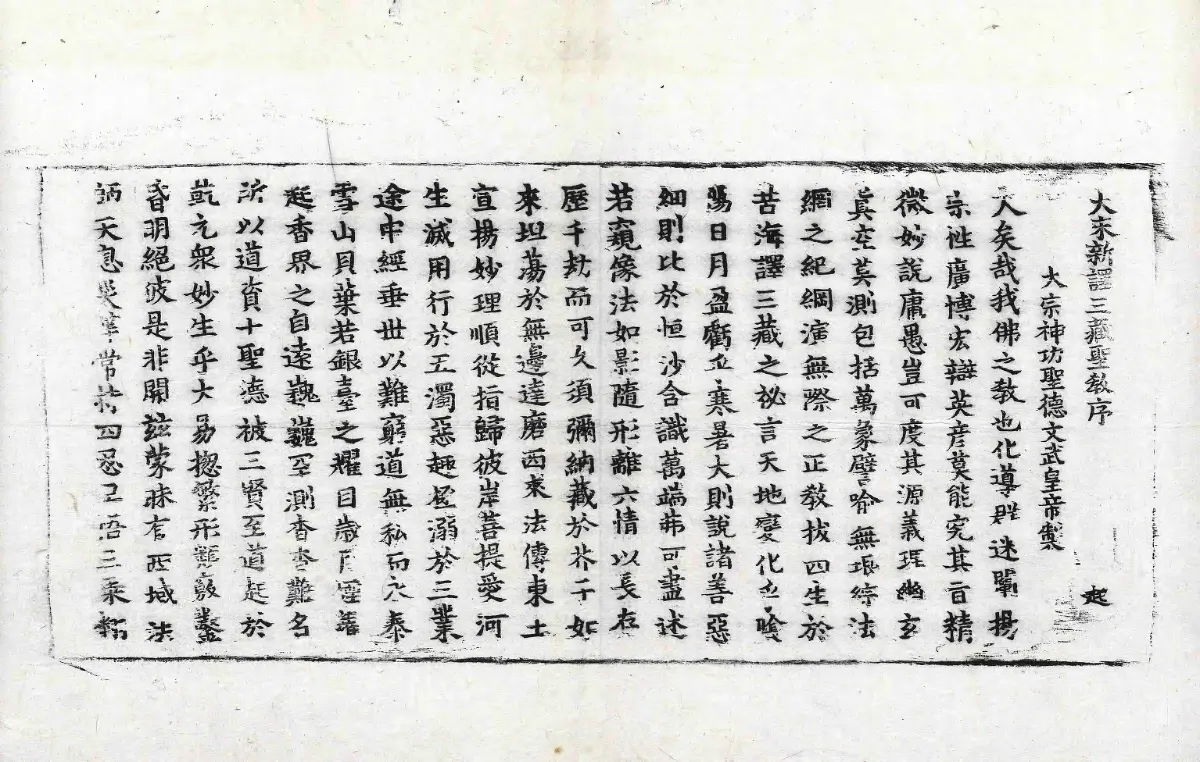 大宋新譯三藏聖教序
太宗神功聖德文武皇帝製
起
大矣哉我佛之教也化導群迷闡揚
宗性廣博宏辯英彥莫能究其旨精
微妙說庸愚豈可度其源義理幽玄
真空莫測包括萬象譬喻無垠綜法
網之紀綱演無際之正教拔四生於
苦海譯三藏之祕言天地變化乎陰
陽日月盈虧乎寒暑大則說諸善惡
細則比於恒沙含識萬端弗可盡述
若窺像法如影隨形離六情以長存
歷千劫而可久須彌納藏於芥子如
來坦蕩於無邊達磨西來法傳東土
宣揚妙理順從指歸彼岸菩提愛河
生滅用行於五濁惡趣拯溺於三業
途中經垂世以難窮道無私而永泰
雪山貝葉若銀臺之耀目歲月煙蘿
起香界之自遠巍巍罕測杳杳難名
所以道資十聖德被三賢至道起於
乾元衆妙生乎太易揔繁形類竅鑿
昏明絕彼是非開茲蒙昧有西域法
師天息災等常持四忍早悟三乘飜